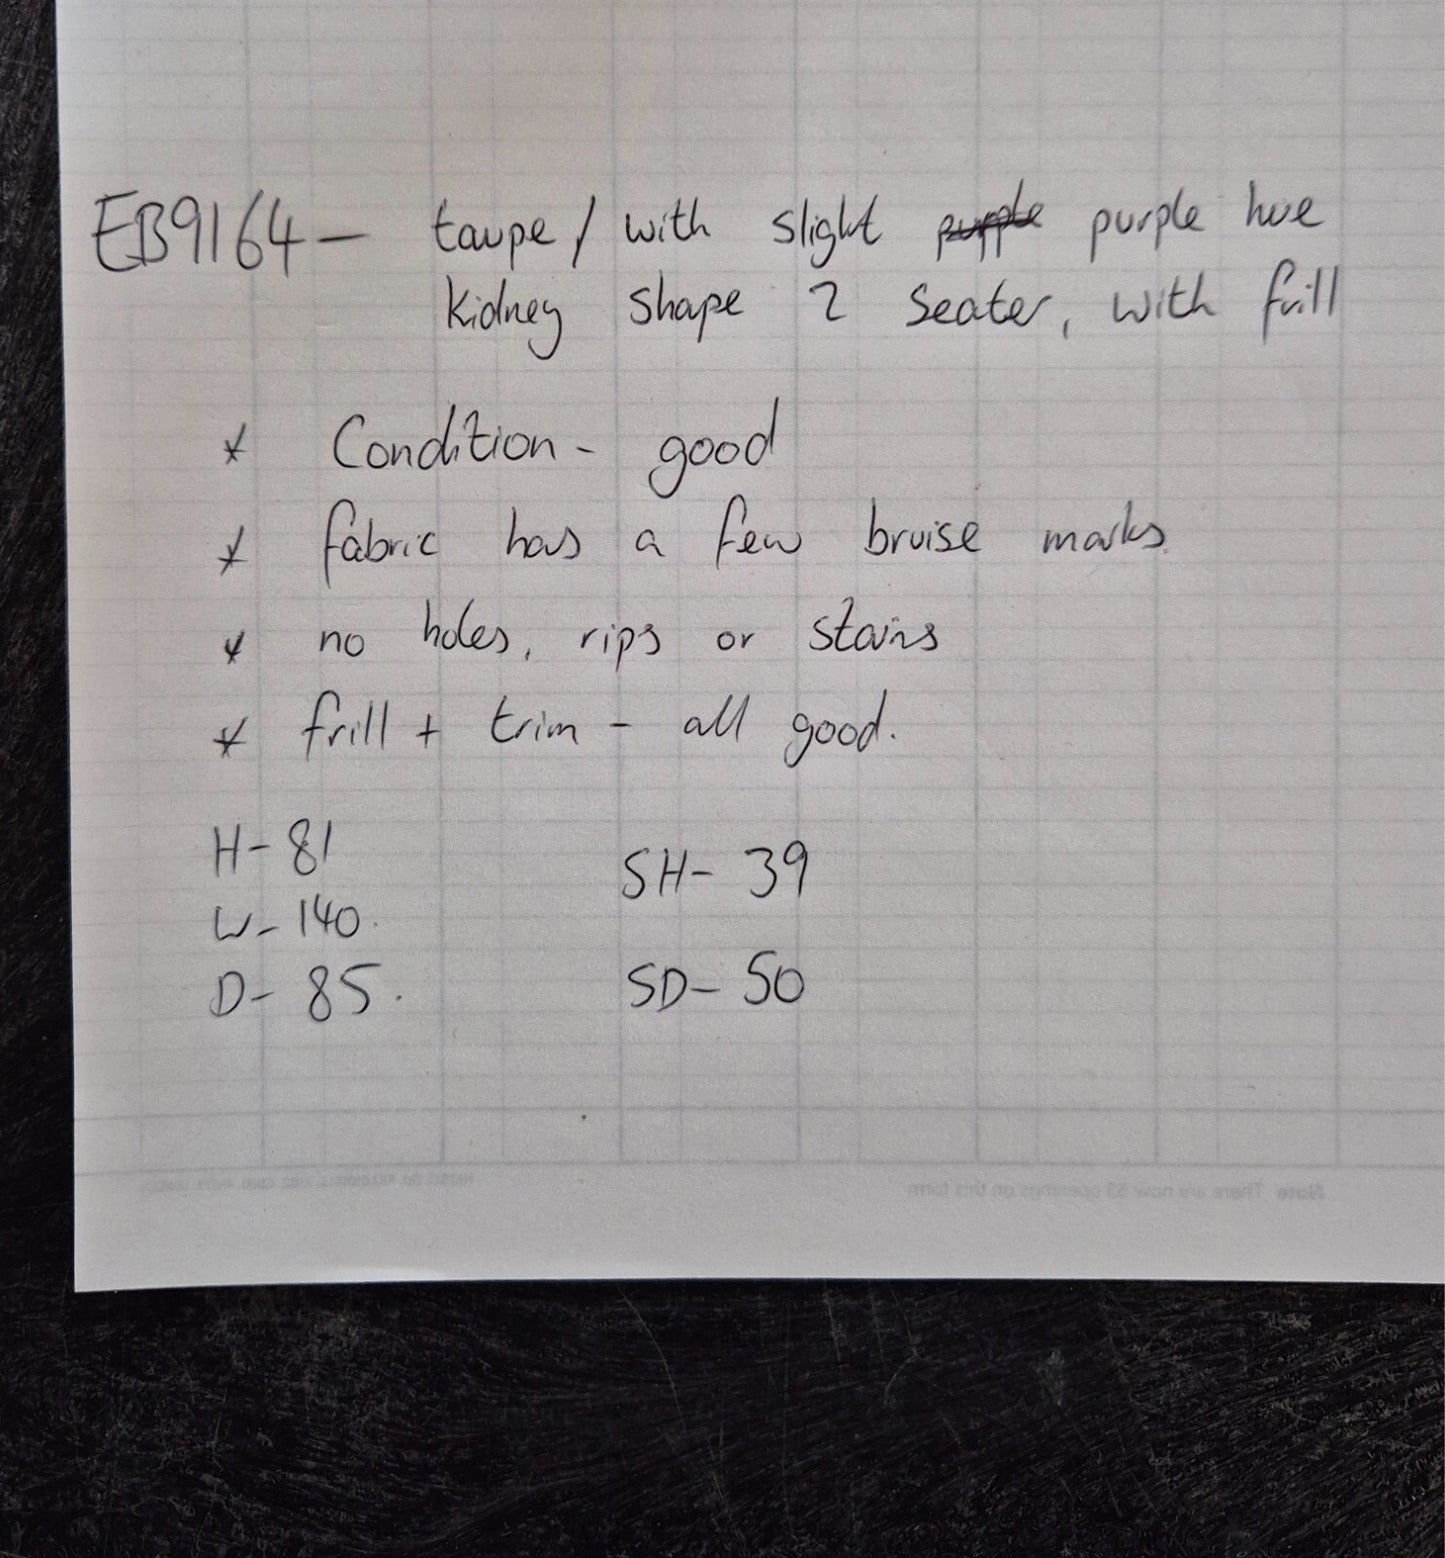 EB9164 - taupe / with slight purple purple hue
Kidney shape 2 Seater, with frill
* Condition - good
* fabric has a few bruise marks.
* no holes, rips or stains
* frill + trim - all good.
H - 81
SH - 39
W - 140.
D - 85.
SD - 50
Note There are now 53 openings on this form